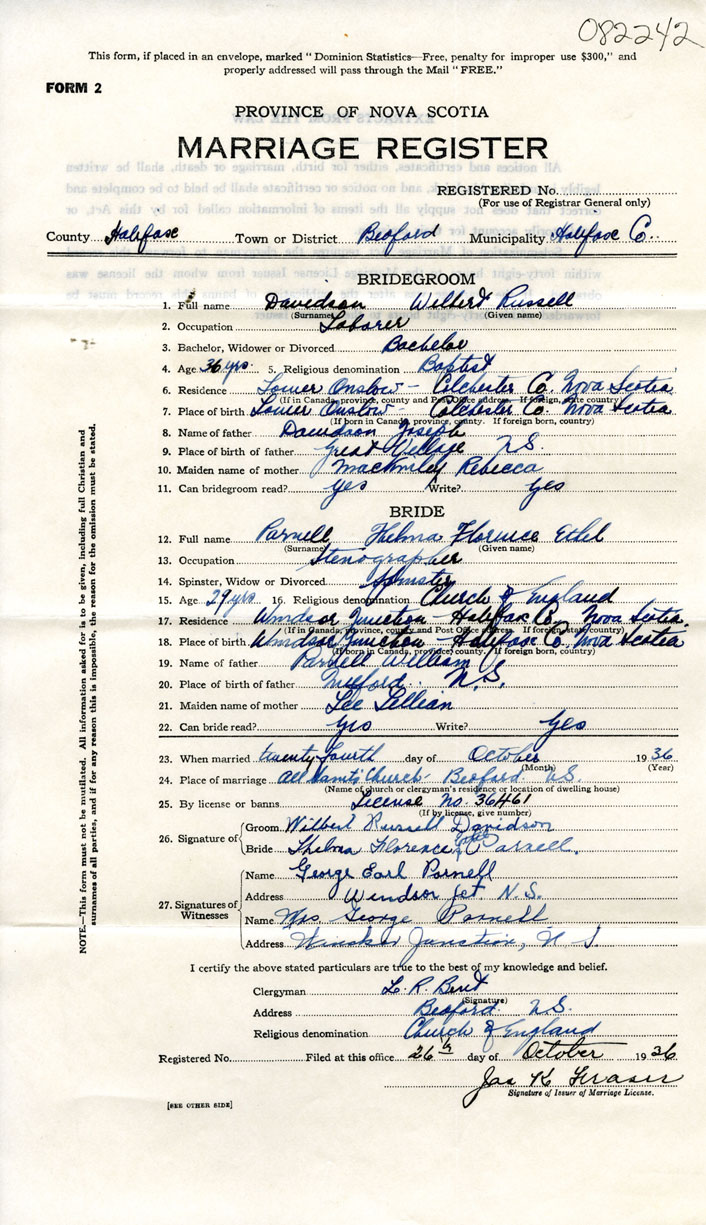 082242
This form, if placed in an envelope, marked "Dominion Statistics—Free, penalty for improper use $300," and
properly addressed will pass through the Mail "FREE."
FORM 2
PROVINCE OF NOVA SCOTIA
MARRIAGE REGISTER
REGISTERED No.
(For use of Registrar General only)
County Halifax Town or District Bedford Municipality Halifax Co.
BRIDEGROOM
1. Full name Davidson Wilbert Russell
(Surname) (Given name)
2. Occupation Laborer
3. Bachelor, Widower or Divorced Bachelor
4. Age 36 yrs. 5. Religious denomination Baptist
6. Residence Lower Onslow - Colchester Co. Nova Scotia
(If in Canada, province, county and Post Office address. If foreign, state country)
7. Place of birth Lower Onslow - Colchester Co. Nova Scotia
(If born in Canada, province, county. If foreign born, country)
8. Name of father Davidson Joseph
9. Place of birth of father Great Village N S
10. Maiden name of mother Rebecca
11. Can bridegroom read? yes Write? yes
BRIDE
12. Full name Parnell Thelma Florence Ethel
(Surname) (Given name)
13. Occupation Stenographer
14. Spinster, Widow or Divorced Spinster
15. Age 29 yrs 16. Religious denomination Church of England
17. Residence Windsor Junction Halifax Co. Nova Scotia.
(If in Canada, province, county and Post Office address. If foreign, state country)
18. Place of birth Windsor Junction Halifax Co. Nova Scotia
(If born in Canada, province, county. If foreign born, country)
19. Name of father Parnell William
20. Place of birth of father Milford N.S.
21. Maiden name of mother Lee Lillian
22. Can bride read? yes Write? yes
23. When married twenty fourth day of October 1936
(Month) (Year)
24. Place of marriage All Saints Church - Bedford N.S.
(Name of church or clergyman's residence or location of dwelling house)
25. By license or banns License No. 36461
(If by license, give number)
26. Signature of
Groom Wilbert Russell Davidson
Bride Thelma Florence E Parnell.
27. Signatures of Witnesses
Name George Earl Parnell
Address Windsor Jct. N.S.
Name Mrs George Parnell
Address Windsor Junction, N S
I certify the above stated particulars are true to the best of my knowledge and belief.
Clergyman L. R. Bent
(Signature)
Address Bedford N.S.
Religious denomination Church of England
Registered No. Filed at this office 26th day of October 1936
Jas K Fraser
Signature of Issuer of Marriage License.
[SEE OTHER SIDE]
NOTE.—This form must not be mutilated. All information asked for is to be given, including full Christian and
surnames of all parties, and if for any reason this is impossible, the reason for the omission must be stated.